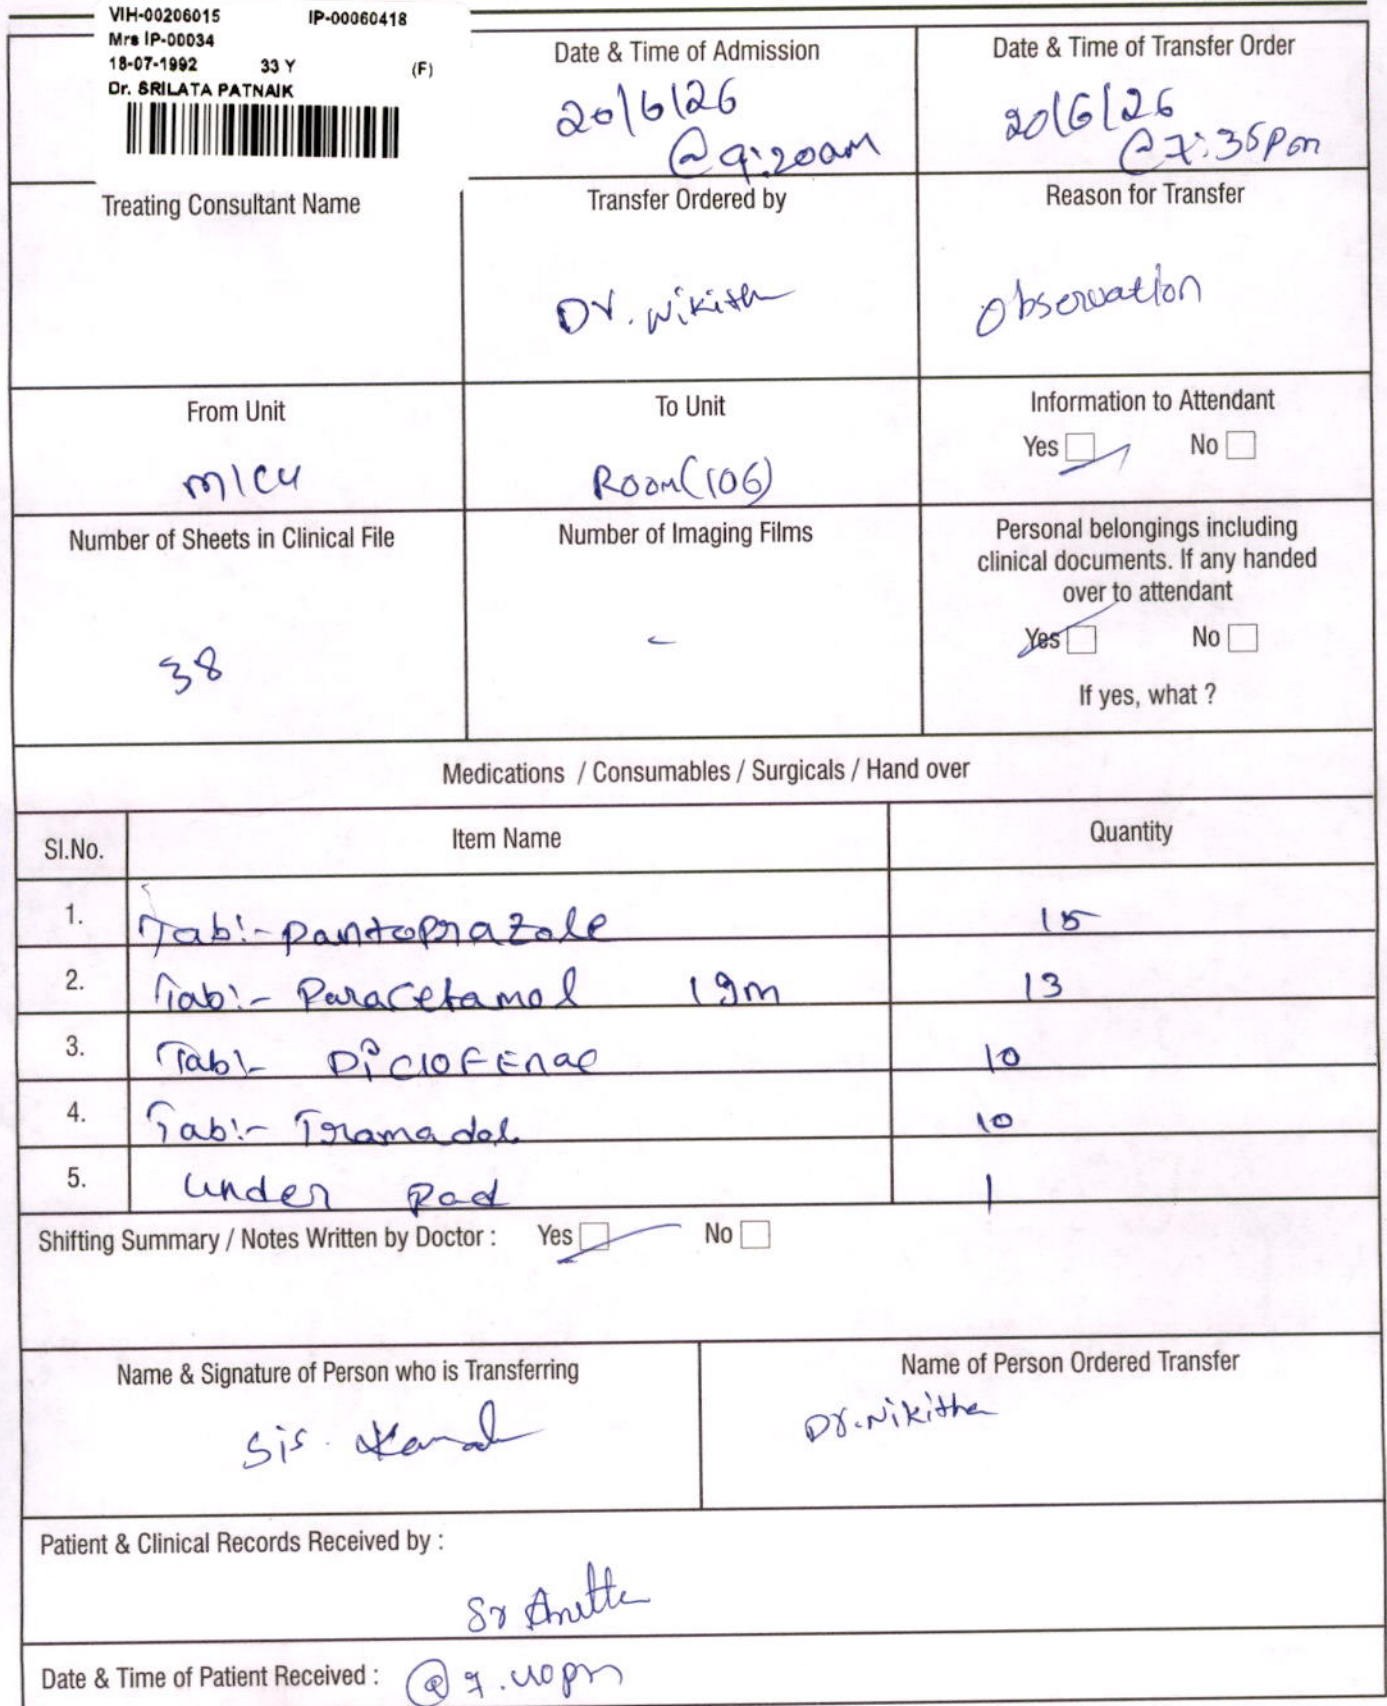 VIH-00206015 IP-00060418
Mrs IP-00034
18-07-1992 33 Y (F)
Dr. SRILATA PATNAIK
Date & Time of Admission
20/6/26
@ 9:20am
Date & Time of Transfer Order
20/6/26
@ 7:35pm
Treating Consultant Name
Transfer Ordered by
Dr. Nikitha
Reason for Transfer
Observation
From Unit
MICU
To Unit
Room(106)
Information to Attendant
Yes No
Number of Sheets in Clinical File
38
Number of Imaging Films
-
Personal belongings including
clinical documents. If any handed
over to attendant
Yes No
If yes, what ?
Medications / Consumables / Surgicals / Hand over
Sl.No. Item Name Quantity
1. Tab:- Pantoprazole 15
2. Tab:- Paracetamol 1gm 13
3. Tab:- Diclofenac 10
4. Tab:- Tramadol 10
5. Under Pad 1
Shifting Summary / Notes Written by Doctor : Yes No
Name & Signature of Person who is Transferring
Sis.
Name of Person Ordered Transfer
Dr. Nikitha
Patient & Clinical Records Received by :
Sr
Date & Time of Patient Received : @ 7.40pm